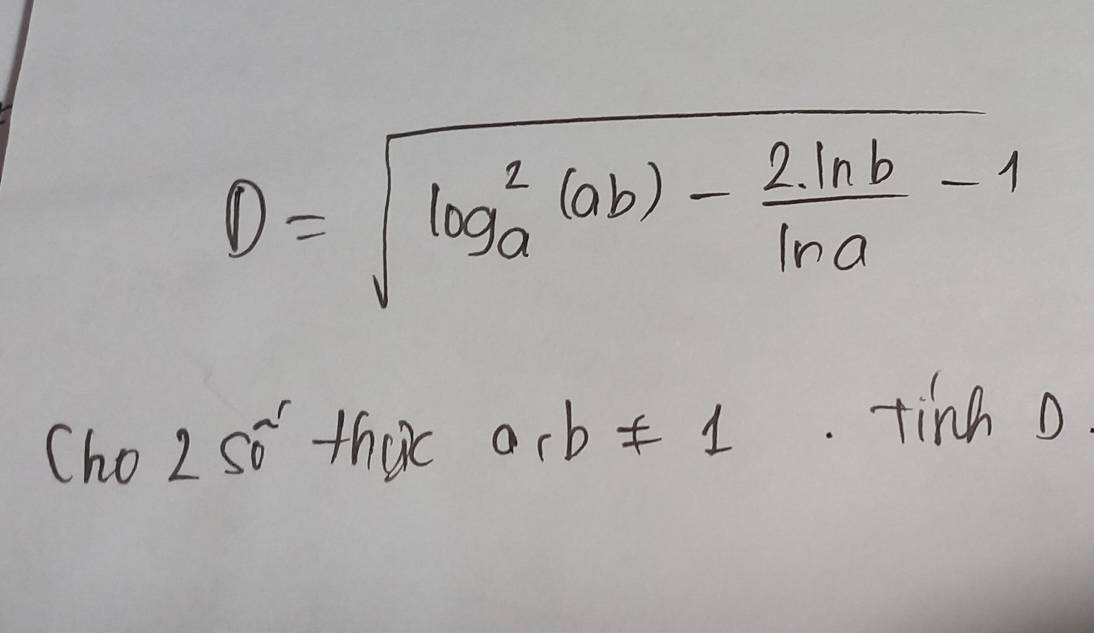 D = √(log²ₐ (ab) - (2.ln b)/(ln a) - 1)
Cho 2 số thực a, b ≠ 1 . tính D.